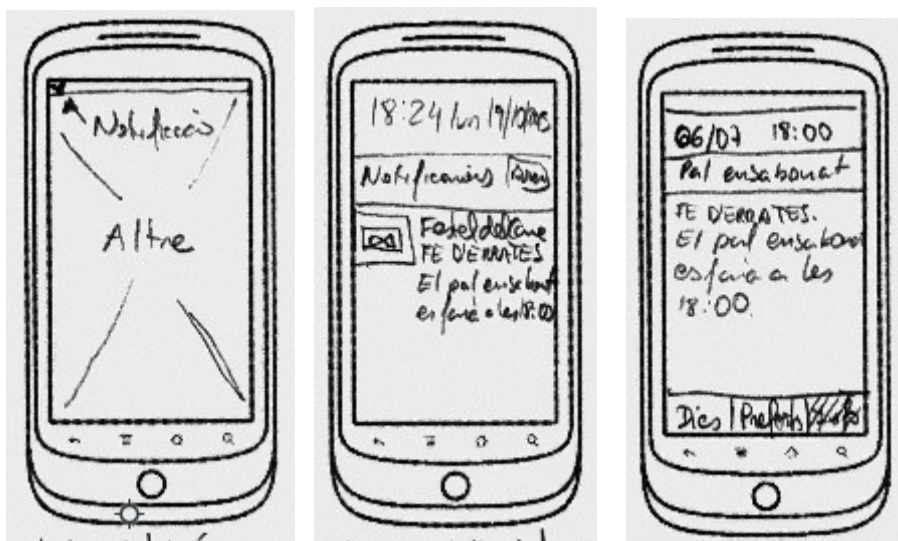 Notificació
Altre
18:24 lun
Notificacions
FE D'ERRATES
El pal ensabonat
es farà a les 18:00
06/07 18:00
Pal ensabonat
FE D'ERRATES.
El pal ensabonat
es farà a les
18:00.
Dies